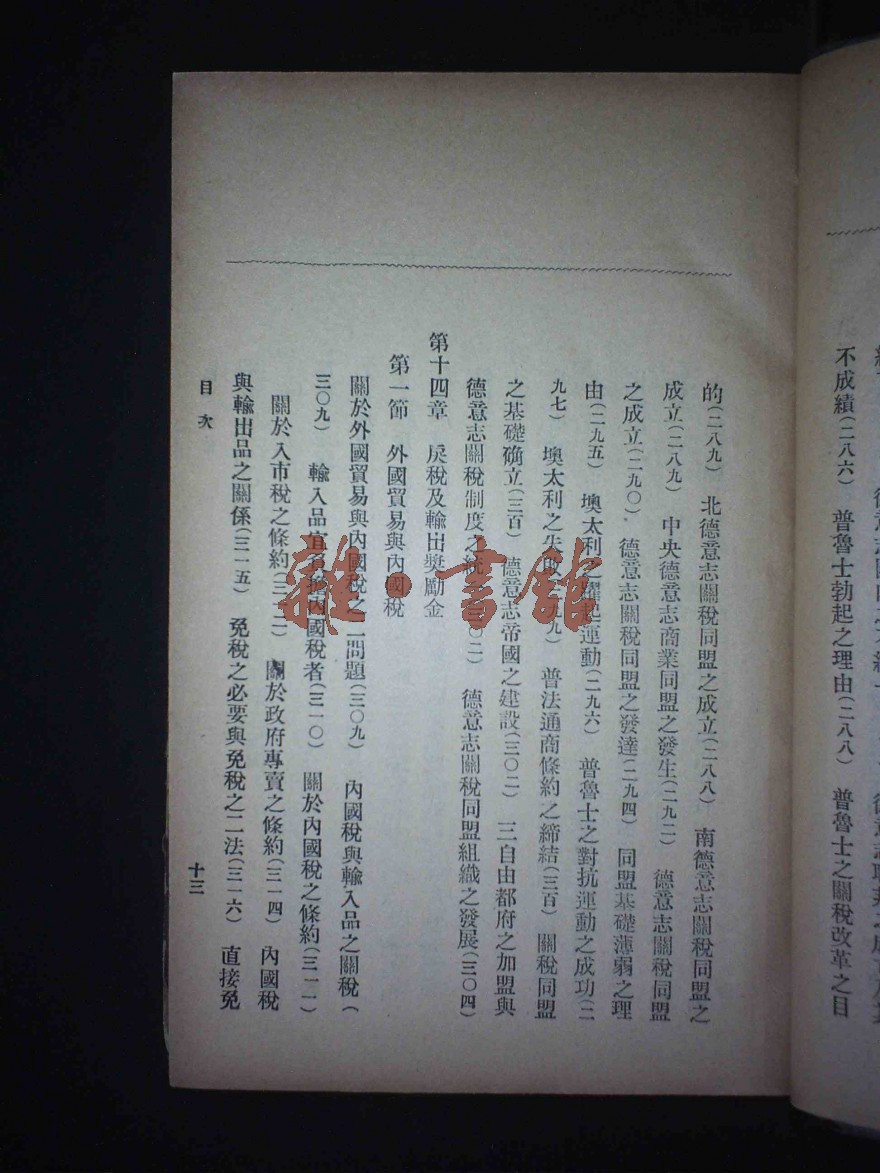 不成績(二八六)　普魯士勃起之理由(二八八)　普魯士之關稅改革之目
的(二八九)　北德意志關稅同盟之成立(二八八)　南德意志關稅同盟之
成立(二八九)　中央德意志商業同盟之發生(二九二)　德意志關稅同盟
之成立(二九〇)　德意志關稅同盟之發達(二九四)　同盟基礎薄弱之理
由(二九五)　墺太利之躍起運動(二九六)　普魯士之對抗運動之成功(二
九七)　墺太利之失敗(二九九)　普法通商條約之締結(三百)　關稅同盟
之基礎确立(三百)　德意志帝國之建設(三〇二)　三自由都府之加盟與
德意志關稅制度之統一(三〇二)　德意志關稅同盟組織之發展(三〇四)
第十四章　戾稅及輸出獎勵金
第一節　外國貿易與內國稅
關於外國貿易與內國稅之二問題(三〇九)　內國稅與輸入品之關稅(
三〇九)　輸入品宜負擔內國稅者(三一〇)　關於內國稅之條約(三一一)
關於入市稅之條約(三一二)　關於政府專賣之條約(三一四)　內國稅
與輸出品之關係(三一五)　免稅之必要與免稅之二法(三一六)　直接免
目次
十三
雜·書館